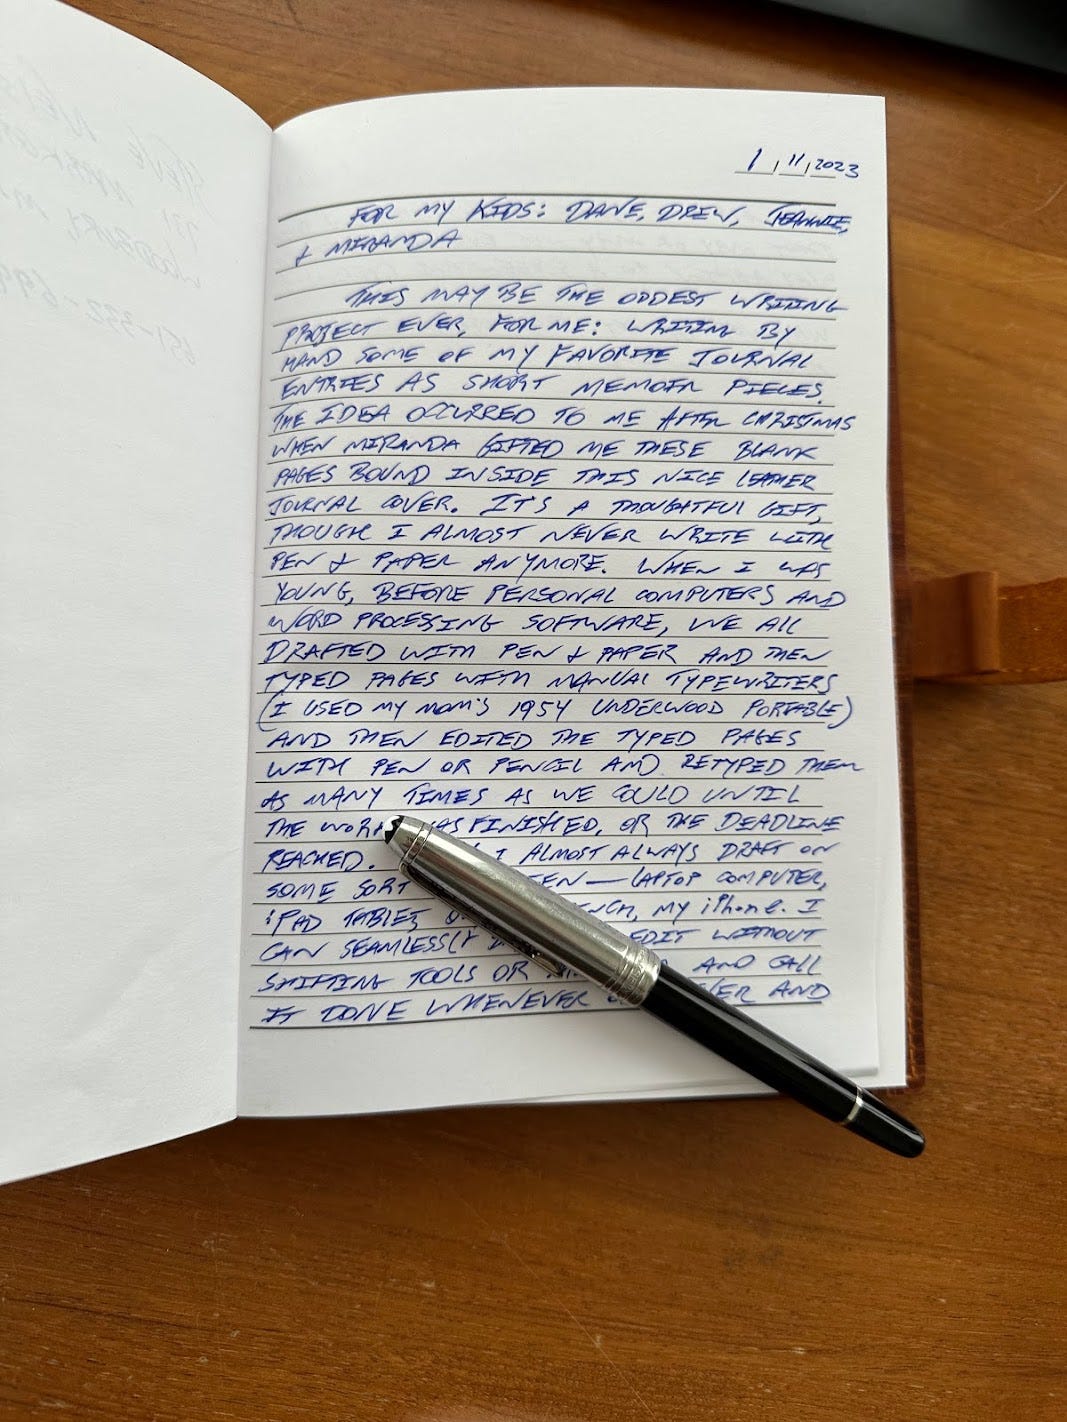 1 11 2023
FOR MY KIDS: DANE, DREW, JEANNIE,
& MIRANDA
THIS MAY BE THE ODDEST WRITING
PROJECT EVER, FOR ME: WRITING BY
HAND SOME OF MY FAVORITE JOURNAL
ENTRIES AS SHORT MEMOIR PIECES.
THE IDEA OCCURRED TO ME AFTER CHRISTMAS
WHEN MIRANDA GIFTED ME THESE BLANK
PAGES BOUND INSIDE THIS NICE LEATHER
JOURNAL COVER. IT'S A THOUGHTFUL GIFT,
THOUGH I ALMOST NEVER WRITE WITH
PEN & PAPER ANYMORE. WHEN I WAS
YOUNG, BEFORE PERSONAL COMPUTERS AND
WORD PROCESSING SOFTWARE, WE ALL
DRAFTED WITH PEN & PAPER AND THEN
TYPED PAGES WITH MANUAL TYPEWRITERS
(I USED MY MOM'S 1954 UNDERWOOD PORTABLE)
AND THEN EDITED THE TYPED PAGES
WITH PEN OR PENCIL AND RETYPED THEM
AS MANY TIMES AS WE COULD UNTIL
THE WORK WAS FINISHED, OR THE DEADLINE
REACHED. I ALMOST ALWAYS DRAFT ON
SOME SORT — LAPTOP COMPUTER,
iPAD TABLET, MY iPhone. I
CAN SEAMLESSLY EDIT WITHOUT
SHIFTING TOOLS OR AND CALL
IT DONE WHENEVER AND